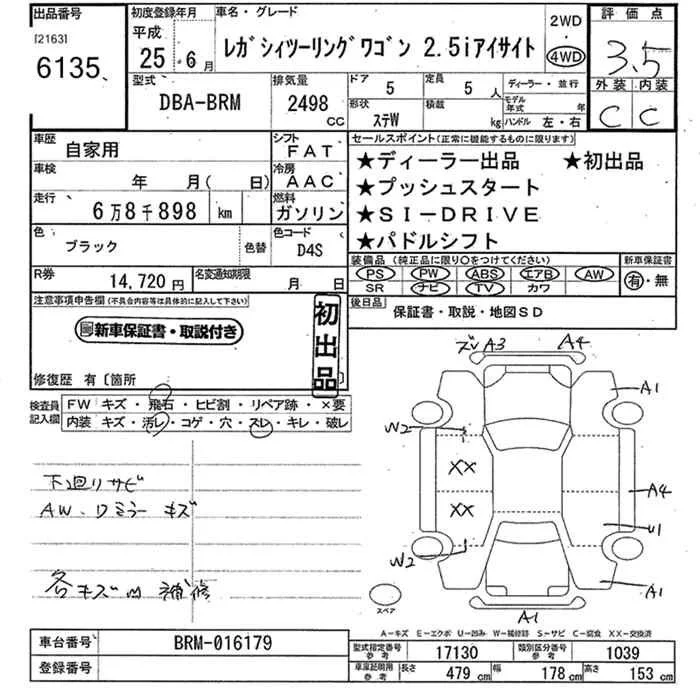 出品番号
[2163]
6135
初度登録年月
平成
25年6月
車名・グレード
レガシィツーリングワゴン 2.5iアイサイト
2WD
・
4WD
評価点
3.5
外装 内装
C C
型式
DBA-BRM
排気量
2498
CC
ドア
5
形状
ステW
定員
5人
積載
kg
ディーラー・並行
モデル年式 年
ハンドル 左・右
車歴
自家用
シフト
FAT
車検
年 月( 日)
冷房
AAC
走行
6万8千898 km
燃料
ガソリン
色
ブラック
色替
色コード
D4S
R券
14,720円
名変通知期限
月 日
セールスポイント(正常に機能するものに限ります)
★ディーラー出品 ★初出品
★プッシュスタート
★SI-DRIVE
★パドルシフト
装備品(純正品に限り○をつけてください)
PS PW ABS エアB AW
SR ナビ TV カワ
新車保証書
有・無
後日品
保証書・取説・地図SD
注意事項申告欄(不具合内容等は具体的に記入して下さい)
新車保証書・取説付き
初出品
修復歴 有〔箇所 〕
検査員記入欄
FW キズ・飛石・ヒビ割・リペア跡・×要
内装 キズ・汚レ・コゲ・穴・スレ・キレ・破レ
下廻りサビ
AW、ワミラーキズ
各キズ内補修
ズレ A3 A4
A1
W2
XX
A4
XX
U1
W2
A1
A1
スペア
A-キズ E-エクボ U-凹み W-補修跡 S-サビ C-腐食 XX-交換済
車台番号
BRM-016179
登録番号
型式指定番号参考
17130
類別区分番号参考
1039
車庫証明用参考
長さ
479 cm
幅
178 cm
高さ
153 cm